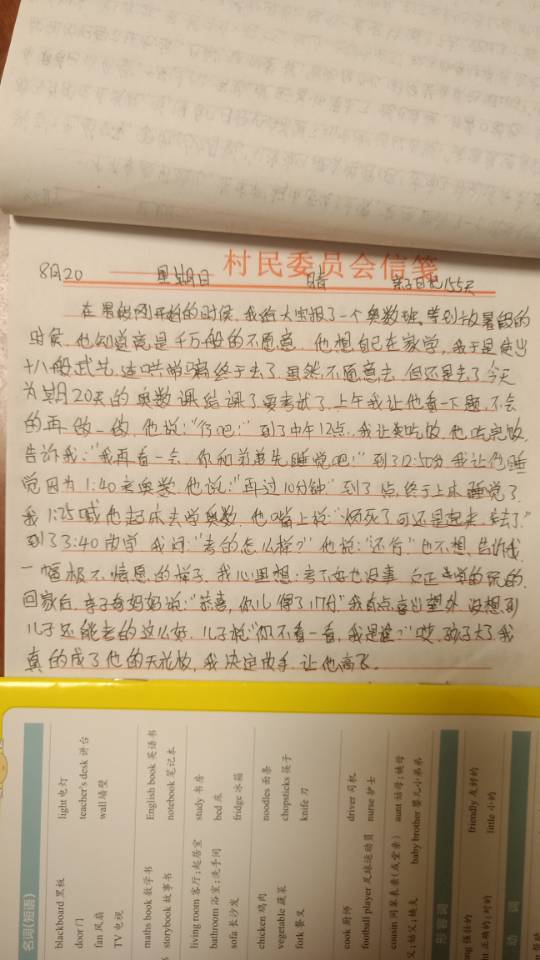 村民委员会信笺
8月20 星期日 晴 亲子日记155天
在暑假刚开始的时候,我给大宝报了一个奥数班,等到放暑假的
时候,他知道竟是千万般的不愿意,他想自己在家学,我于是使出
十八般武艺,连哄带骗终于去了,虽然不愿意去,但还是去了,今天
为期20天的奥数课结课了要考试了,上午我让他看一下题,不会
的再做一做,他说:“行吧!”到了中午12点,我让来吃饭,他吃完饭,
告诉我:“我再看一会,你和弟弟先睡觉吧!”到了12:50分我让他睡
觉因为1:40考奥数,他说:“再过10分钟”到了1点,终于上床睡觉了.
我1:25喊他起床去学奥数,他嘴上说:“烦死了”可还是起来,去了”
到了3:40放学,我问:“考的怎么样?”他说:“还行”也不想告诉我,
一幅极不情愿的样子,我心里想:考不好也没事,反正
回家后 妈妈说:“恭喜,你儿得了117分”我有点喜出望外,没想到
儿子还能考的这么好,儿子说“你不看一看,我是谁?”哎,孩子大了,我
真的成了他的天花板,我决定放手,让他高飞.
名词(短语)
blackboard 黑板 light 电灯
door 门 teacher's desk 讲台
fan 风扇 wall 墙壁
TV 电视
maths book 数学书 English book 英语书
storybook 故事书 notebook 笔记本
living room 客厅;起居室 study 书房
bathroom 浴室;洗手间 bed 床
sofa 长沙发 fridge 冰箱
chicken 鸡肉 noodles 面条
vegetable 蔬菜 chopsticks 筷子
fork 餐叉 knife 刀
cook 厨师 driver 司机
football player 足球运动员 nurse 护士
cousin 同辈表亲(或堂亲) aunt 姑母;姨母
父;姑父;姨夫 baby brother 婴儿小弟弟
形容词
强壮的 friendly 友好的
正确的;对的 little 小的
动词